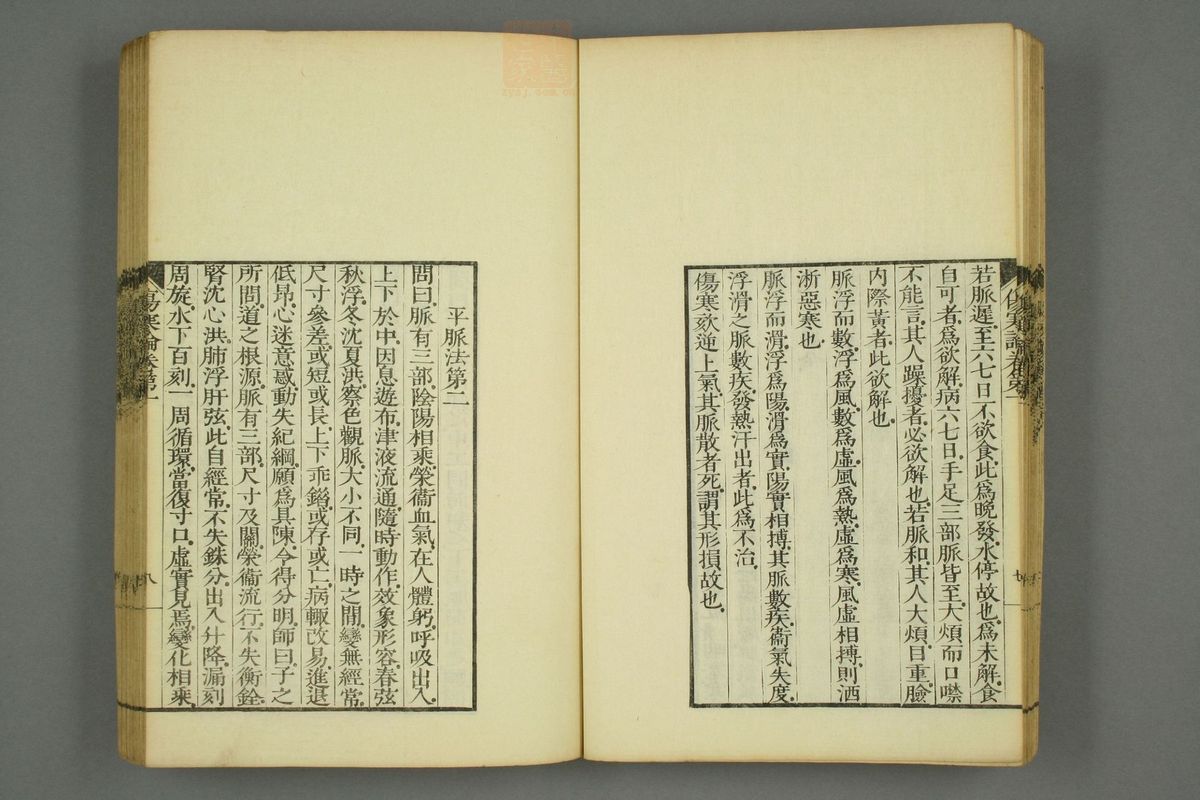 若脈遲。至六七日不欲食。此爲晚發。水停故也。爲未解。食
自可者。爲欲解。病六七日。手足三部脈皆至。大煩而口噤
不能言。其人躁擾者。必欲解也。若脈和。其人大煩。目重。瞼
內際黃者。此欲解也。
脈浮而數。浮爲風。數爲虛。風爲熱。虛爲寒。風虛相搏。則洒
淅惡寒也
脈浮而滑。浮爲陽。滑爲實。陽實相搏。其脈數疾。衞氣失度。
浮滑之脈數疾。發熱汗出者。此爲不治。
傷寒欬逆上氣。其脈散者死。謂其形損故也。
平脈法第二
問曰。脈有三部。陰陽相乘。榮衞血氣。在人體躬。呼吸出入。
上下於中。因息遊布。津液流通。隨時動作。效象形容。春弦
秋浮。冬沈夏洪。察色觀脈。大小不同。一時之間。變無經常。
尺寸參差。或短或長。上下乖錯。或存或亡。病輒改易。進退
低昂。心迷意惑。動失紀綱。願爲具陳。令得分明。師曰。子之
所問。道之根源。脈有三部。尺寸及關。榮衞流行。不失衡銓。
腎沈心洪。肺浮肝弦。此自經常。不失銖分。出入升降。漏刻
周旋。水下百刻。一周循環。當復寸口。虛實見焉。變化相乘。
傷寒論卷第一
八